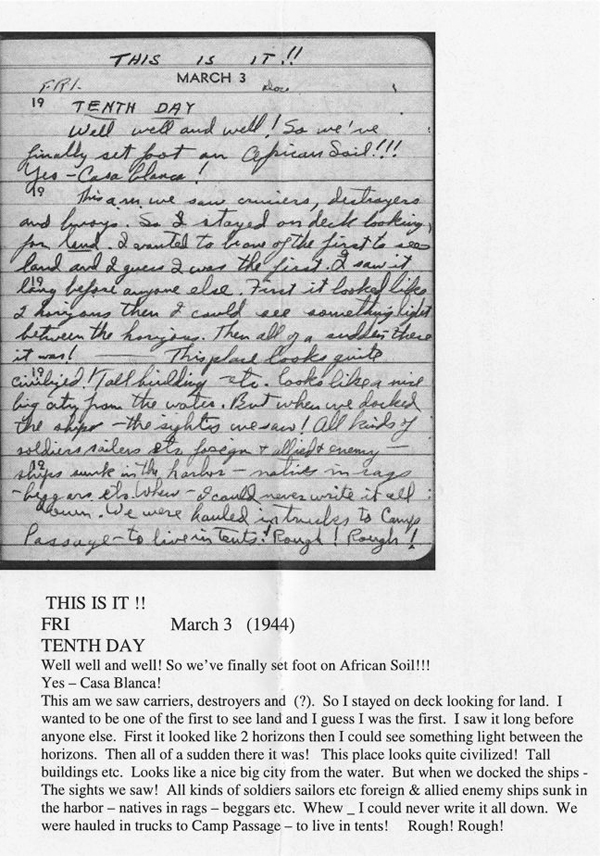 THIS IS IT!!
MARCH 3
FRI.
19 TENTH DAY
Well well and well! So we've
finally set foot on African Soil!!!
Yes - Casa blanca!
19
This a.m. we saw cruisers, destroyers
and buoys. So I stayed on deck looking
for land. I wanted to be one of the first to see
land and I guess I was the first. I saw it
19
long before anyone else. First it looked like
2 horizons then I could see something light
between the horizons. Then all of a sudden there
it was! — This place looks quite
19
civilized! Tall building etc. looks like a nice
big city from the water. But when we docked
the ships - the sights we saw! All kinds of
soldiers sailers etc foreign + allied + enemy -
19
ships sunk in the harbor - natives in rags
- beggars etc. Whew - I could never write it all
down. We were hauled in trucks to Camp
Passage - to live in tents! Rough! Rough!
THIS IS IT !!
FRI March 3 (1944)
TENTH DAY
Well well and well! So we've finally set foot on African Soil!!!
Yes – Casa Blanca!
This am we saw carriers, destroyers and (?). So I stayed on deck looking for land. I
wanted to be one of the first to see land and I guess I was the first. I saw it long before
anyone else. First it looked like 2 horizons then I could see something light between the
horizons. Then all of a sudden there it was! This place looks quite civilized! Tall
buildings etc. Looks like a nice big city from the water. But when we docked the ships -
The sights we saw! All kinds of soldiers sailors etc foreign & allied enemy ships sunk in
the harbor – natives in rags – beggars etc. Whew _ I could never write it all down. We
were hauled in trucks to Camp Passage – to live in tents! Rough! Rough!